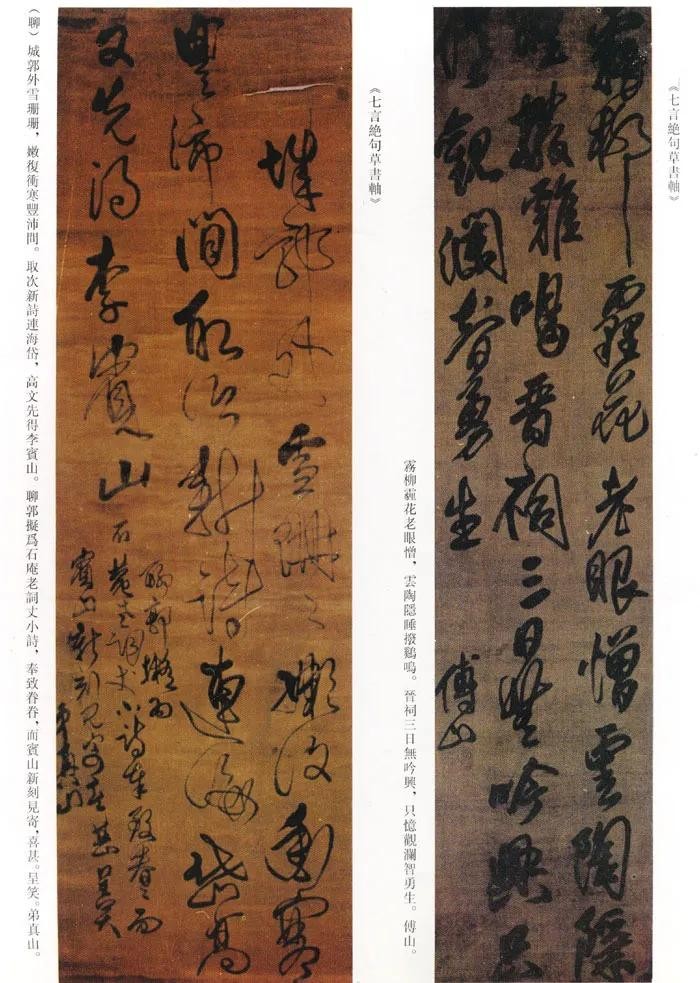 《七言絕句草書軸》
霧柳霾花老眼憎雲陶隱
睡撥雞鳴晉祠三日無吟興只
憶觀瀾智勇生 傅山
霧柳霾花老眼憎，雲陶隱睡撥鷄鳴。晉祠三日無吟興，只憶觀瀾智勇生。傅山。
《七言絕句草書軸》
城郭外雪珊〻嬾復衝寒
豐沛間取次新詩連海岱高
文先得李賓山
聊郭擬爲
石菴老詞丈小詩奉致眷〻而
賓山新刻見寄喜甚呈笑
弟真山
（聊）城郭外雪珊珊，嫩復衝寒豐沛間。取次新詩連海岱，高文先得李賓山。聊郭擬爲石庵老詞丈小詩，奉致眷眷，而賓山新刻見寄，喜甚。呈笑。弟真山。